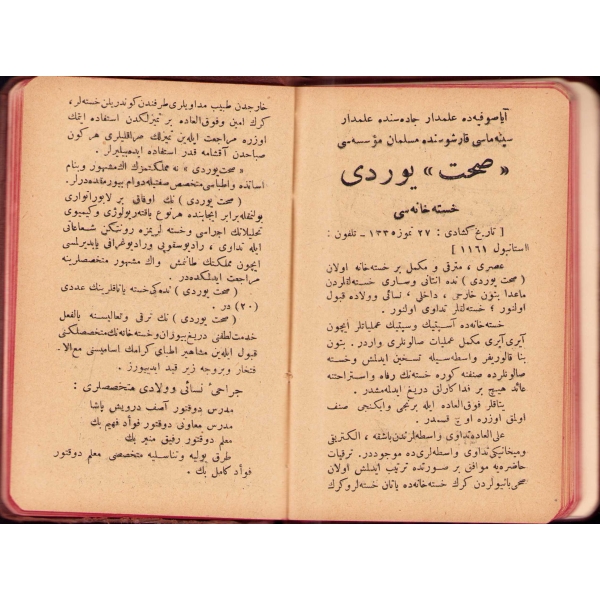 آیاصوفیه‌ده علمدار جاده‌سنده علمدار
سینه‌ماسی قارشوسنده مسلمان مؤسسه‌سی
« صحت » یوردی
خسته خانه‌سی
[ تاریخ کشادی : ٢٧ تموز ١٣٣٥ ـ تلفون :
استانبول ١١٦١ ]
عصری ، مترقی و مکمل بر خسته خانه اولان
( صحت یوردی ) نده انتانی وساری خسته‌لقلردن
ماعدا بتون خارجی ، داخلی ، نسائی وولاده قبول
اولنور ؛ خسته‌لقلر تداوی اولنور .
خسته خانه‌ده آسپتیك وسپتیك عملیاتلر ایچون
آیری آیری مکمل عملیات صالونلری واردر . بتون
بنا قالوریفر واسطه‌سیله تسخین ایدلمش وخسته
صالونلرده صنفنه کوره خسته‌نك رفاه واستراحتنه
عائد هیچ بر فداکارلق دریغ ایدلمه‌مشدر .
یتاقلر فوق‌العاده ایله برنجی وایکنجی صنف
اولمق اوزره اوچ قسمدر .
علی‌العاده تداوی واسطه‌لرندن باشقه ، الکتریقی
ومیخانیکی تداوی واسطه‌لری‌ده موجوددر . ترقیات
حاضره‌یه موافق بر صورتده ترتیب ایدلمش اولان
صحی بانیولردن کرك خسته‌خانه‌ده یاتان خسته‌لر وکرك
خارجدن طبیب مداویلری طرفندن کوندریلن خسته‌لر ،
كرك امین وفوق‌العاده بر تمیزلکدن استفاده ایتمك
اوزره مراجعت ایله‌ین تمیزلك مراقلیلری هرکون
صباحدن آقشامه قدر استفاده ایده‌بیلیرلر .
« صحت یوردی » نه مملکتمزك اك مشهور وبنام
اساتذه واطباسی متخصص صفتیله دوام بیورمقده‌درلر .
( صحت یوردی ) نك اوفاقی بر لابوراتواری
بولنمغله برابر ایجابنده هرنوع باقته‌ریولوژی وکیمیوی
تحلیلاتك اجراسی وخسته لریمزه رونتکن شعاعاتی
ایله تداوی ، رادیوسقوپی ورادیوغرافی یاپدیرلمسی
ایچون مملکتك طانمش واك مشهور متخصصلرینه
مراجعت ایدلمکده‌در .
( صحت یوردی ) نده‌کی خسته یاتاقلرینك عددی
( ٢٠ ) در .
( صحت یوردی ) نك ترقی وتعالیسنه بالفعل
خدمت لطفنی دریغ بیورمیان وخسته خانه‌نك متخصصلکنی
قبول ایله‌ین مشاهیر اطبای کرامك اسامیسنی مع‌الا-
فتخار وبروجه زیر قید ایدییورز .
جراحیٔ نسائی وولادی متخصصلری :
مدرس دوقتور آصف درویش پاشا
مدرس معاونی دوقتور فوأد فهیم بك
معلم دوقتور رفیق منیر بك
طرق بولیه وتناسلیه متخصصی معلم دوقتور
فوأد کامل بك .